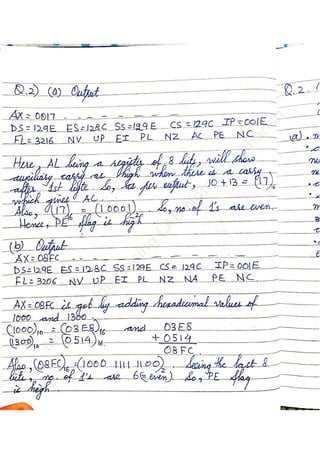 Q.2) (a) Output
AX = 0017 . - - - - - - - - - -
DS=129E ES=128C SS=129E CS=129C IP=001E
FL=3216 NV UP EI PL NZ AC PE NC
Here, AL being a register of 8 bits, will show
auxiliary carry as high when there is a carry
after 1st byte So, as per output, 10+13 = (17)16
which gives AC.
Also, (17)16 = (10001)2 So, no. of 1's are even.
Hence, PE flag is high
(b) Output
AX = 08FC . . - - - - - - - - -
DS=129E ES=128C SS=129E CS=129C IP=001E
FL=3206 NV UP EI PL NZ NA PE NC.
AX=08FC is got by adding hexadecimal values of
1000 and 1300.
(1000)10 = (03E8)16 and 03E8
(1300)10 = (0514)16 + 0514
08FC
Also, (08FC)16 = (1000 1111 1100)2. Seeing the last 8
bits, no. of 1's are 6 (even) So, PE flag
is high.
Q.2.
(a).